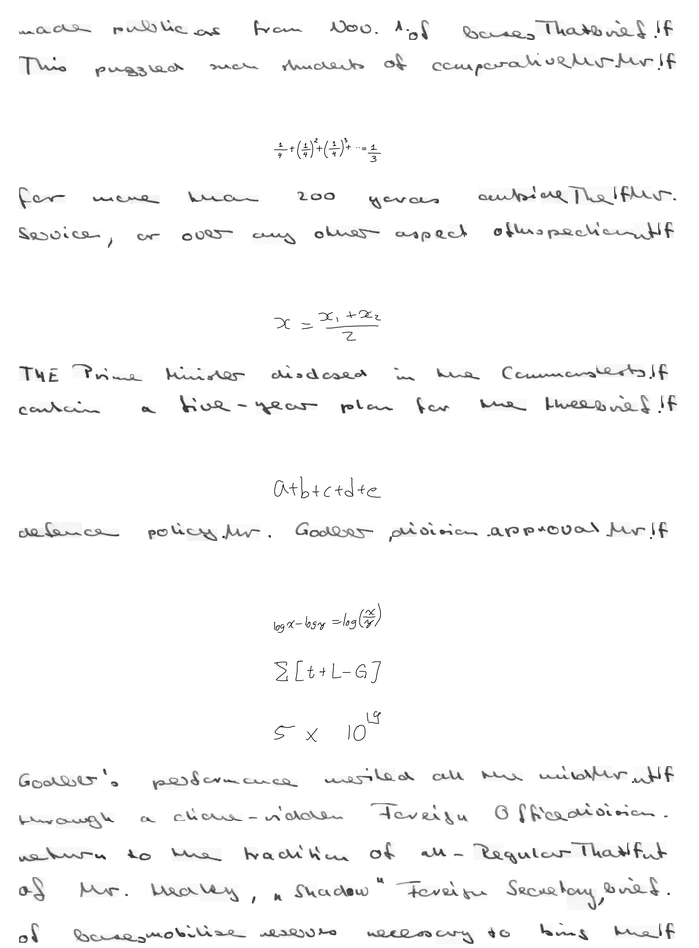 made public as from Nov. 1. of bases That brief. If
This puzzled such students of comparative Mr. Mr. If
\frac{1}{4}+(\frac{1}{4})^2+(\frac{1}{4})^3+\cdots=\frac{1}{3}
for more than 200 yards outside The If Mr.
Service, or over any other aspect of If
x = \frac{x_1 + x_2}{2}
THE Prime Minister disclosed in the Commons If
contain a five-year plan for the three brief. If
a+b+c+d+e
defence policy. Mr. Godber division. approval Mr. If
log x - log y = log(\frac{x}{y})
Σ[t+L-G]
5 x 10^{19}
Godber's performance merited all the mild Mr. If
through a cliche-ridden Foreign Office division.
return to the tradition of all-Regular That
of Mr. Healey, "Shadow" Foreign Secretary, brief.
of bases mobilise reserves necessary to bring the If